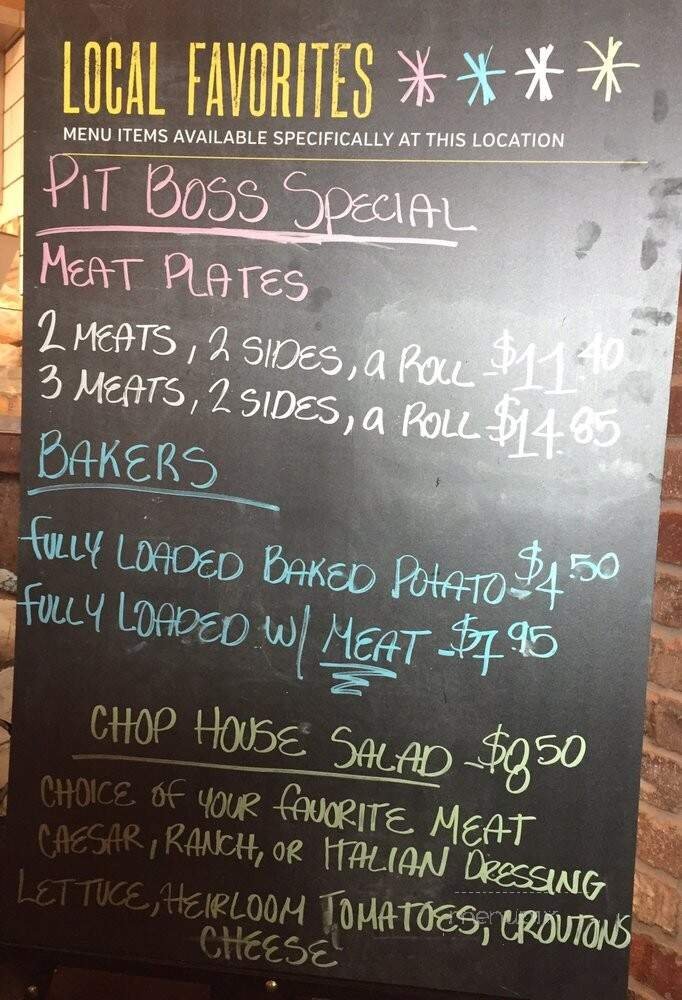 LOCAL FAVORITES
MENU ITEMS AVAILABLE SPECIFICALLY AT THIS LOCATION
PIT BOSS SPECIAL
MEAT PLATES
2 MEATS, 2 SIDES, a ROLL - $11.40
3 MEATS, 2 SIDES, a ROLL $14.85
BAKERS
FULLY LOADED BAKED POTATO - $4.50
FULLY LOADED W/ MEAT - $7.95
CHOP HOUSE SALAD - $8.50
CHOICE OF YOUR FAVORITE MEAT
CAESAR, RANCH, OR ITALIAN DRESSING
LETTUCE, HEIRLOOM TOMATOES, CROUTONS
CHEESE